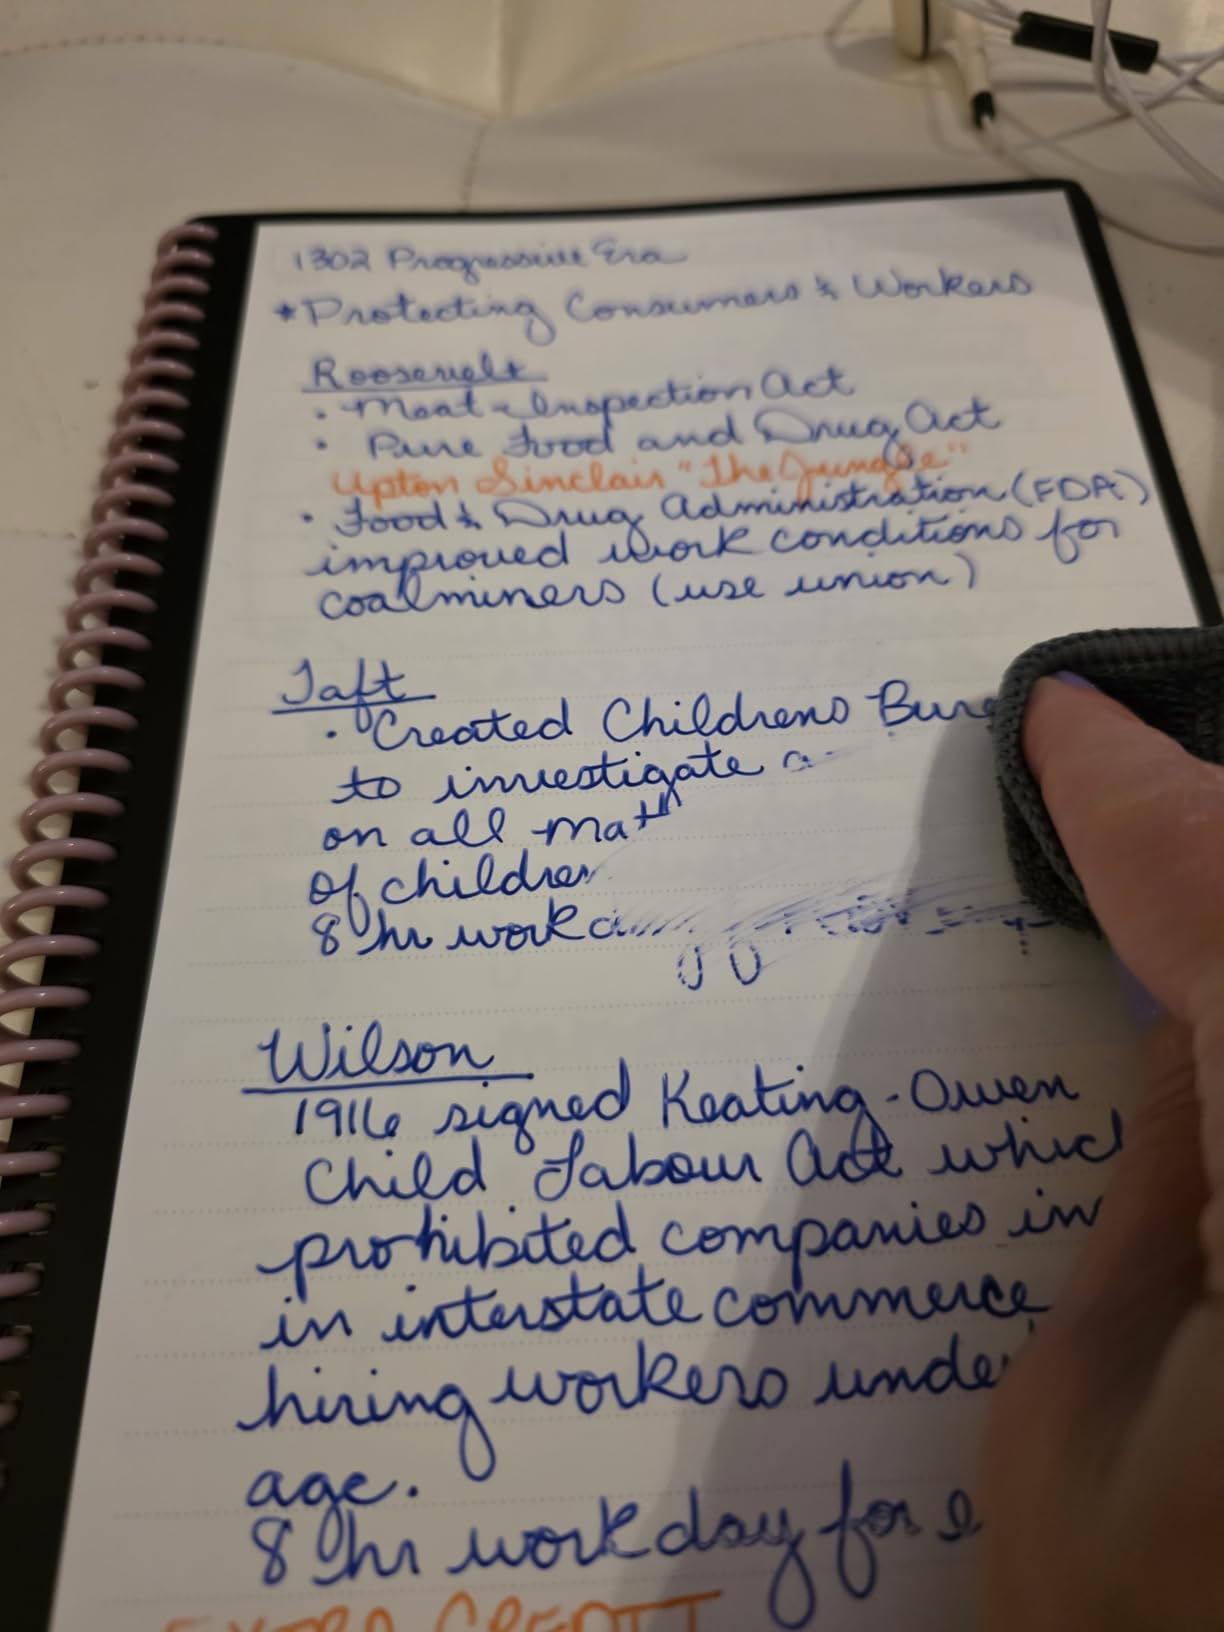 1302 Progressive Era
*Protecting Consumers & Workers
Roosevelt
• Meat-Inspection Act
• Pure Food and Drug Act
Upton Sinclair "The Jungle"
• Food & Drug Administration (FDA)
improved work conditions for
coalminers (use union)
Taft
• Created Childrens
to investigate
on all
of children
8 hr work
Wilson
1916 signed Keating-Owen
Child Labour Act
prohibited companies
in interstate commerce
hiring workers
age.
8 hr workday for
EXTRA CREDIT